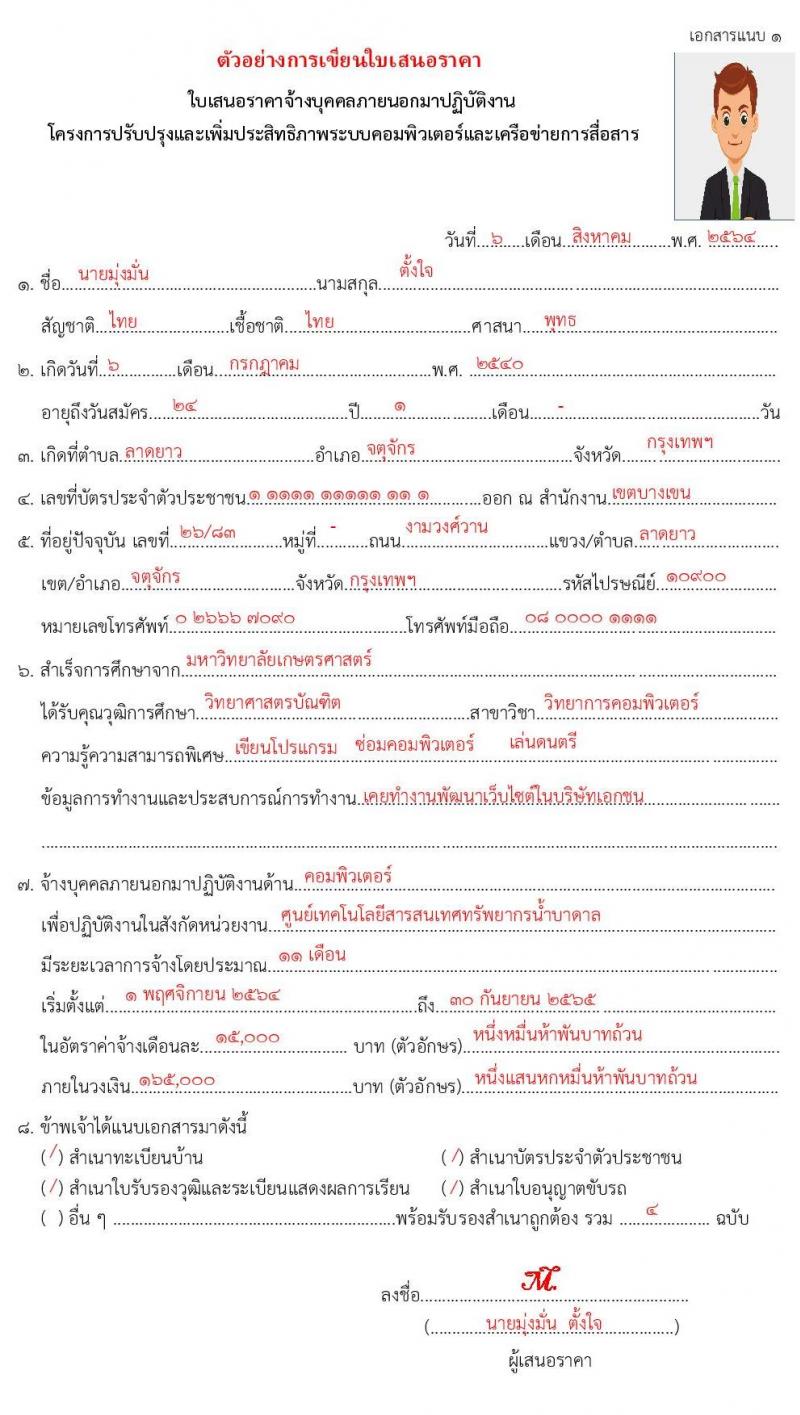 เอกสารแนบ ๑
ตัวอย่างการเขียนใบเสนอราคา
ใบเสนอราคาจ้างบุคคลภายนอกมาปฏิบัติงาน
โครงการปรับปรุงและเพิ่มประสิทธิภาพระบบคอมพิวเตอร์และเครือข่ายการสื่อสาร
วันที่...๖.....เดือน..สิงหาคม..........พ.ศ. ๒๕๖๔
๑. ชื่อ....นายมุ่งมั่น..........นามสกุล.....ตั้งใจ..........
สัญชาติ...ไทย..........เชื้อชาติ....ไทย..........ศาสนา.....พุทธ..........
๒. เกิดวันที่..๖..........เดือน...กรกฎาคม..........พ.ศ. ๒๕๔๐..........
อายุถึงวันสมัคร.....๒๔..........ปี......๑..........เดือน.....-..........วัน
๓. เกิดที่ตำบล.ลาดยาว..........อำเภอ.จตุจักร..........จังหวัด.....กรุงเทพฯ..........
๔. เลขที่บัตรประจำตัวประชาชน.๑ ๑๑๑๑ ๑๑๑๑๑ ๑๑ ๑..........ออก ณ สำนักงาน.เขตบางเขน..........
๕. ที่อยู่ปัจจุบัน เลขที่..๒๖/๘๓..........หมู่ที่...-.....ถนน.งามวงศ์วาน..........แขวง/ตำบล.ลาดยาว..........
เขต/อำเภอ..จตุจักร..........จังหวัด.กรุงเทพฯ..........รหัสไปรษณีย์..๑๐๙๐๐..........
หมายเลขโทรศัพท์.๐ ๒๖๖๖ ๗๐๙๐..........โทรศัพท์มือถือ...๐๘ ๐๐๐๐ ๑๑๑๑..........
๖. สำเร็จการศึกษาจาก.มหาวิทยาลัยเกษตรศาสตร์..........
ได้รับคุณวุฒิการศึกษา..วิทยาศาสตรบัณฑิต..........สาขาวิชา..วิทยาการคอมพิวเตอร์..........
ความรู้ความสามารถพิเศษ..เขียนโปรแกรม ซ่อมคอมพิวเตอร์ เล่นดนตรี..........
ข้อมูลการทำงานและประสบการณ์การทำงาน..เคยทำงานพัฒนาเว็บไซต์ในบริษัทเอกชน..........
๗. จ้างบุคคลภายนอกมาปฏิบัติงานด้าน..คอมพิวเตอร์..........
เพื่อปฏิบัติงานในสังกัดหน่วยงาน...ศูนย์เทคโนโลยีสารสนเทศทรัพยากรน้ำบาดาล..........
มีระยะเวลาการจ้างโดยประมาณ...๑๑ เดือน..........
เริ่มตั้งแต่....๑ พฤศจิกายน ๒๕๖๔..........ถึง...๓๐ กันยายน ๒๕๖๕..........
ในอัตราค่าจ้างเดือนละ...๑๕,๐๐๐.......... บาท (ตัวอักษร)..หนึ่งหมื่นห้าพันบาทถ้วน..........
ภายในวงเงิน..๑๖๕,๐๐๐..........บาท (ตัวอักษร)...หนึ่งแสนหกหมื่นห้าพันบาทถ้วน..........
๘. ข้าพเจ้าได้แนบเอกสารมาดังนี้
(/) สำเนาทะเบียนบ้าน (/) สำเนาบัตรประจำตัวประชาชน
(/) สำเนาใบรับรองวุฒิและระเบียนแสดงผลการเรียน (/) สำเนาใบอนุญาตขับรถ
( ) อื่น ๆ ..........พร้อมรับรองสำเนาถูกต้อง รวม .....๔..... ฉบับ
ลงชื่อ..........M...........
(..........นายมุ่งมั่น ตั้งใจ..........)
ผู้เสนอราคา